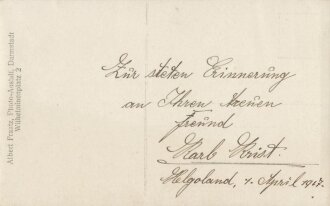 Albert Frantz, Photo-Anstalt, Darmstadt
Wilhelminenplatz 2
Zur steten Erinnerung
an Ihren treuen
freund
Karl
Helgoland, 1. April 1917.